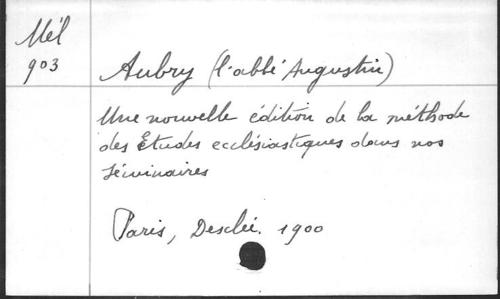 Mél
903
Aubry (l'abbé Augustin)
Une nouvelle édition de la méthode
des Études ecclésiastiques dans nos
séminaires
Paris, Desclée. 1900